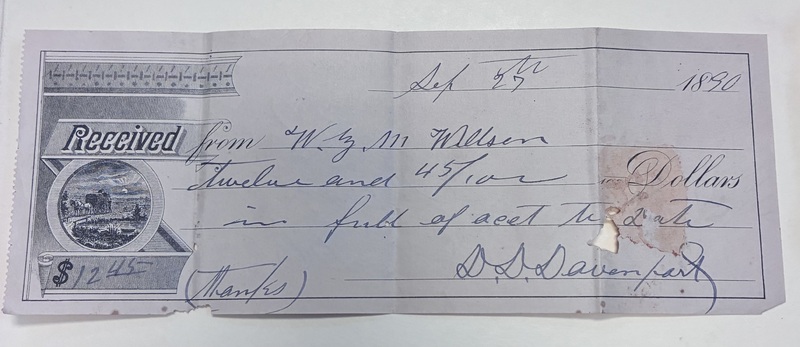 Sep 27th 1890
Received from W. G. M Willson
twelve and 45/100 Dollars
in full of acct to date
$12.45 (thanks) D. D. Davenport